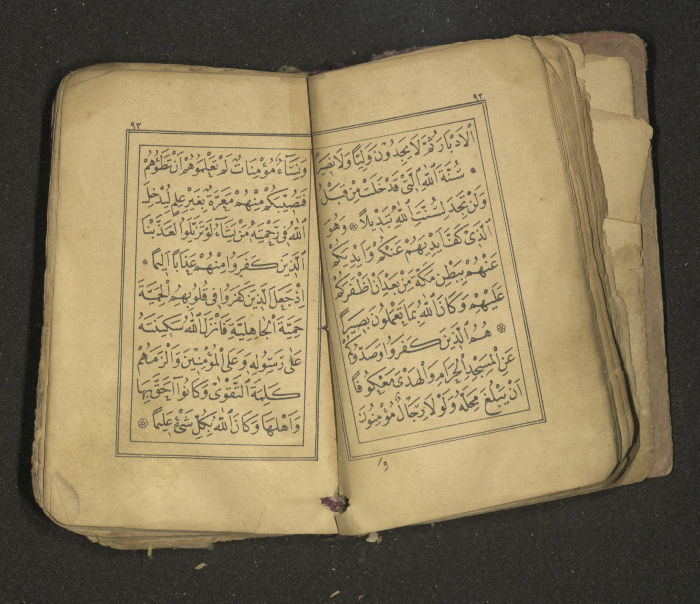 ٩٢
الْاَدْبَارَ ثُمَّ لَا يَجِدُونَ وَلِيًّا وَلَا نَصِيرًا
سُنَّةَ اللّٰهِ الَّتٖى قَدْ خَلَتْ مِنْ قَبْلُ
وَلَنْ تَجِدَ لِسُنَّتِ اللّٰهِ تَبْدٖيلًا وَهُوَ
الَّذٖى كَفَّ اَيْدِيَهُمْ عَنْكُمْ وَاَيْدِيَكُمْ
عَنْهُمْ بِبَطْنِ مَكَّةَ مِنْ بَعْدِ اَنْ اَظْفَرَكُمْ
عَلَيْهِمْ وَكَانَ اللّٰهُ بِمَا تَعْمَلُونَ بَصٖيرًا
هُمُ الَّذٖينَ كَفَرُوا وَصَدُّوكُمْ
عَنِ الْمَسْجِدِ الْحَرَامِ وَالْهَدْىَ مَعْكُوفًا
اَنْ يَبْلُغَ مَحِلَّهُ وَلَوْلَا رِجَالٌ مُؤْمِنُونَ
و
٩٣
وَنِسَٓاءٌ مُؤْمِنَاتٌ لَمْ تَعْلَمُوهُمْ اَنْ تَطَؤُهُمْ
فَتُصٖيبَكُمْ مِنْهُمْ مَعَرَّةٌ بِغَيْرِ عِلْمٍ لِيُدْخِلَ
اللّٰهُ فٖى رَحْمَتِهٖ مَنْ يَشَٓاءُ لَوْ تَزَيَّلُوا لَعَذَّبْنَا
الَّذٖينَ كَفَرُوا مِنْهُمْ عَذَابًا اَلٖيمًا
اِذْ جَعَلَ الَّذٖينَ كَفَرُوا فٖى قُلُوبِهِمُ الْحَمِيَّةَ
حَمِيَّةَ الْجَاهِلِيَّةِ فَاَنْزَلَ اللّٰهُ سَكٖينَتَهُ
عَلٰى رَسُولِهٖ وَعَلَى الْمُؤْمِنٖينَ وَاَلْزَمَهُمْ
كَلِمَةَ التَّقْوٰى وَكَانُوا اَحَقَّ بِهَا
وَاَهْلَهَا وَكَانَ اللّٰهُ بِكُلِّ شَىْءٍ عَلٖيمًا